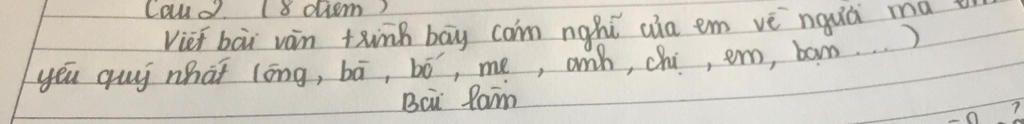 Câu 2. (8 điểm)
Viết bài văn trình bày cảm nghĩ của em về người mà em
yêu quý nhất (ông, bà, bố, mẹ, anh, chị, em, bạn...)
Bài làm